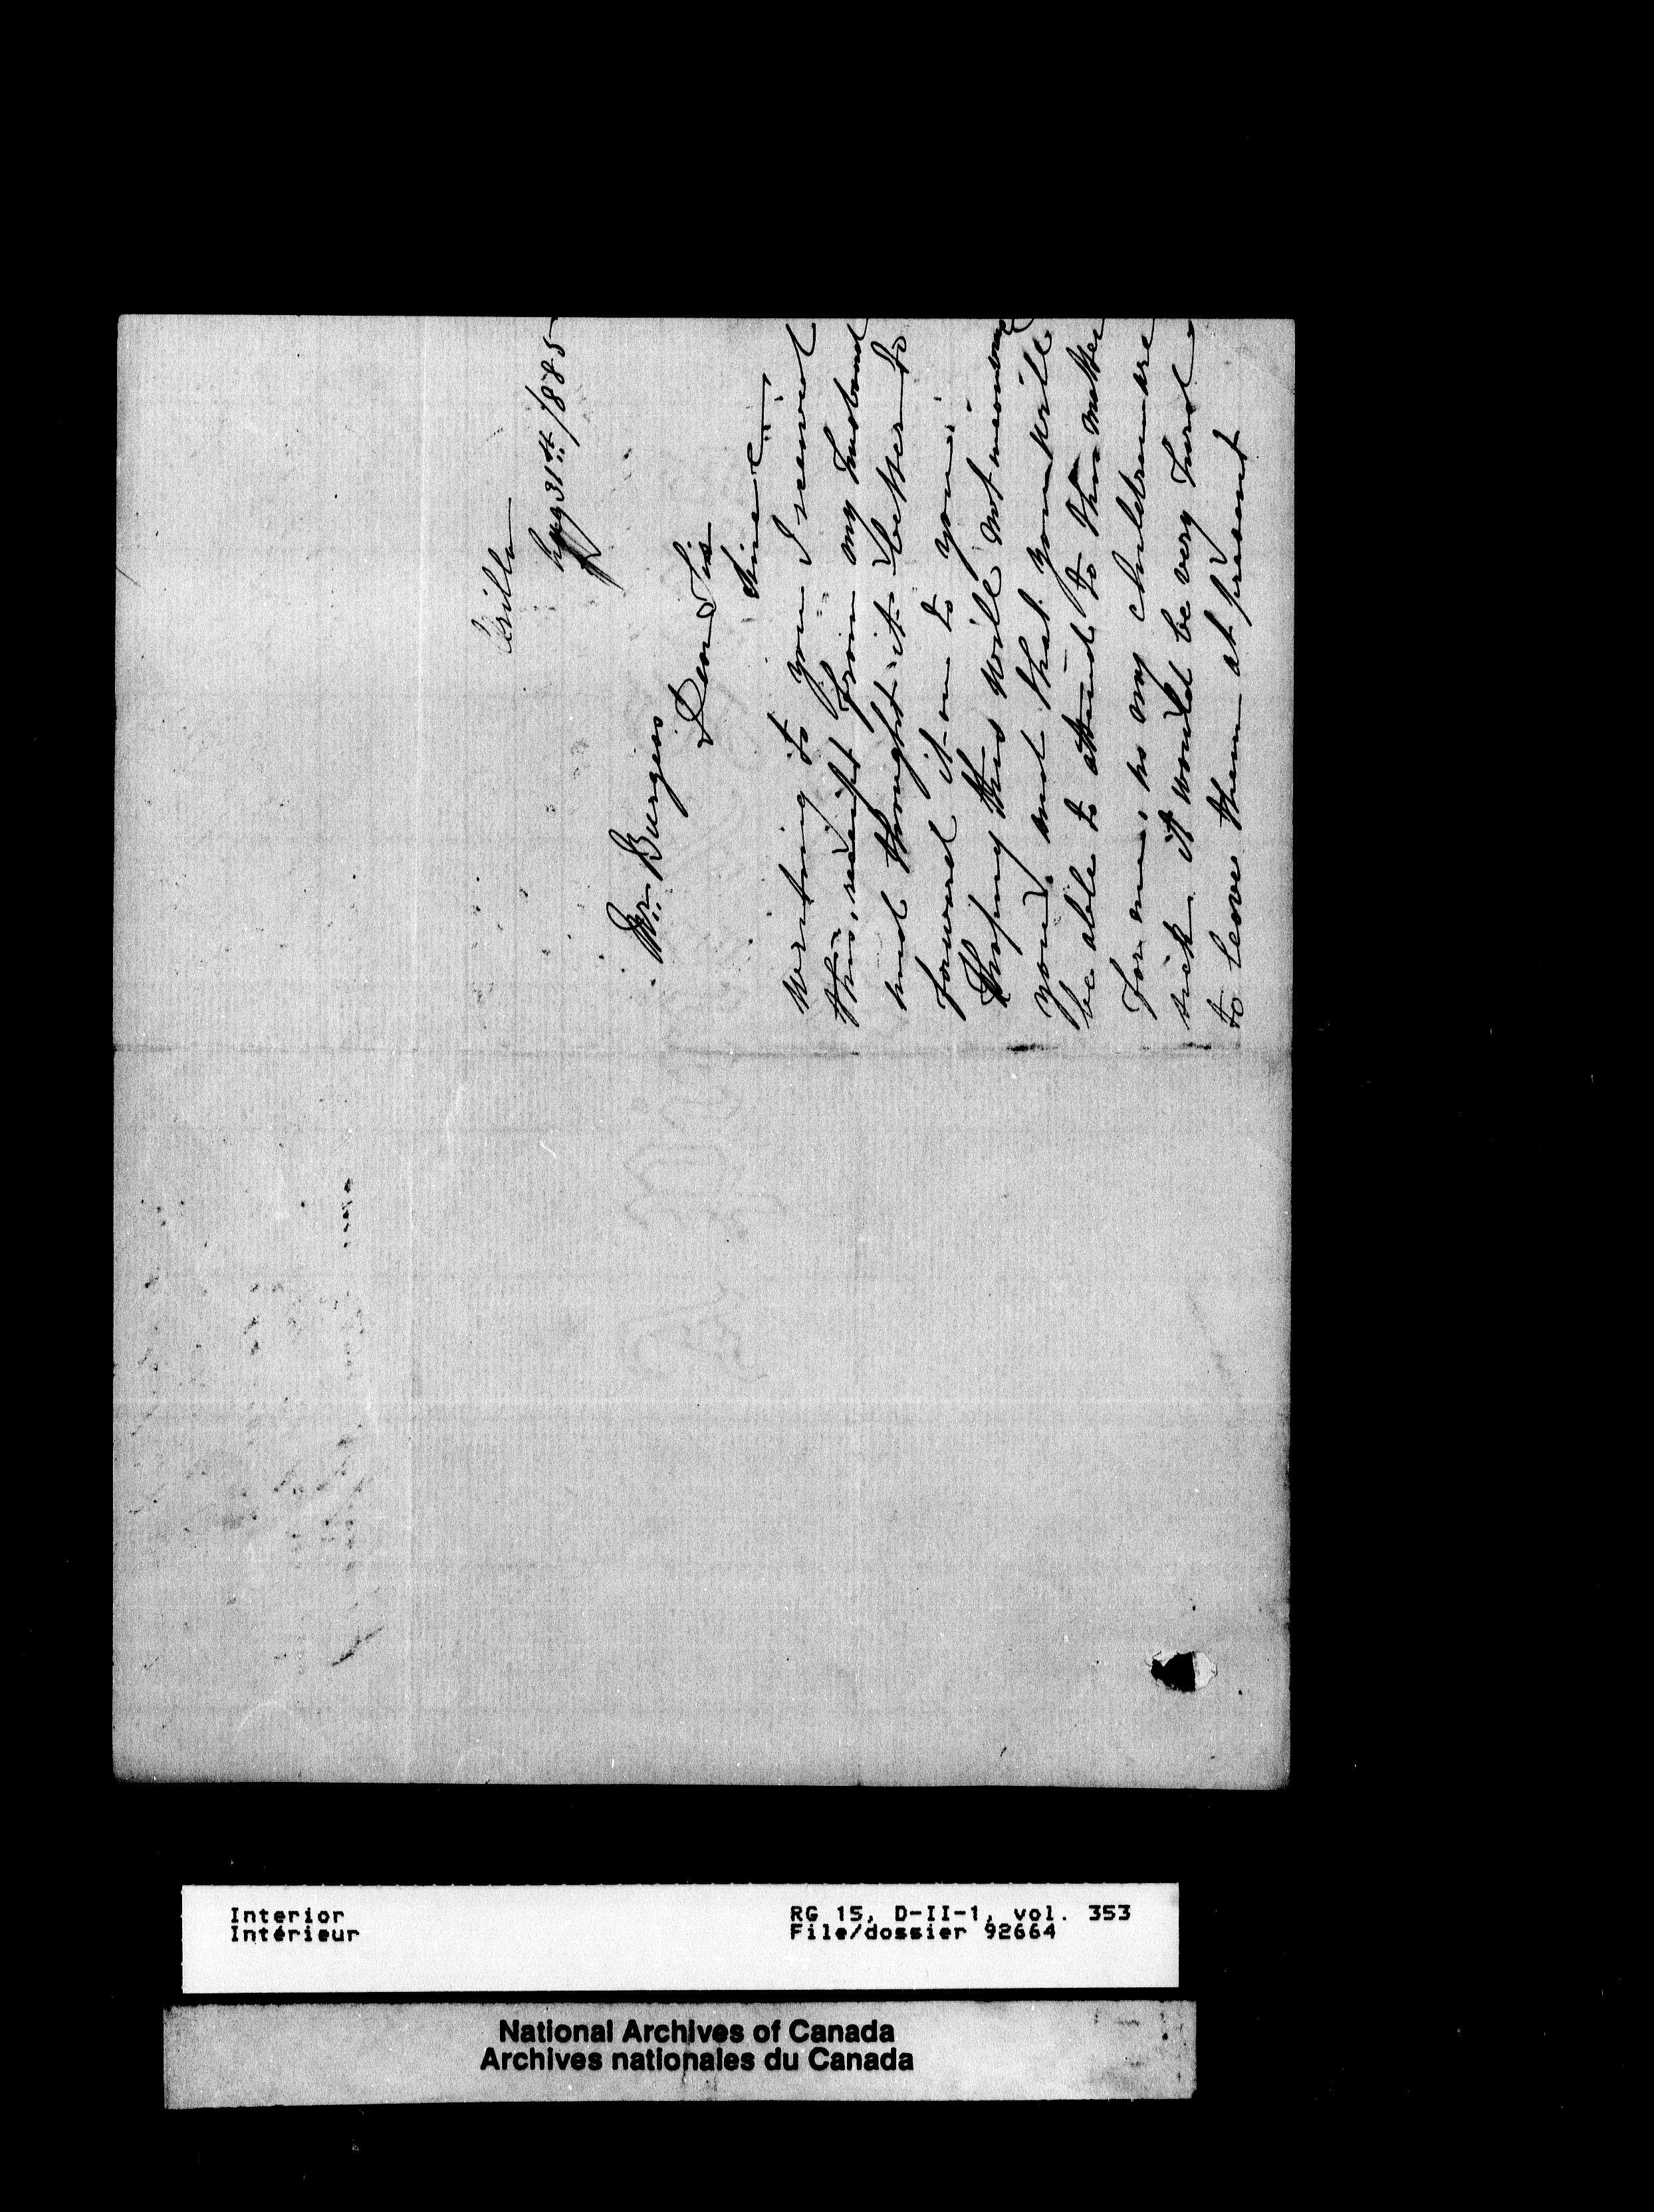 Orillia
Aug 31st /1885
Mr. Burgess
Dear Sir
Since
writing to you I received
this receipt from my husband
and thought it better to
forward it on to you.
Hoping this will not
you, and that you will
be able to attend to this matter
for me, as my children are
sick it would be very hard
to leave them at present
Interior
Intérieur
RG 15, D-II-1, vol. 353
File/dossier 92664
National Archives of Canada
Archives nationales du Canada